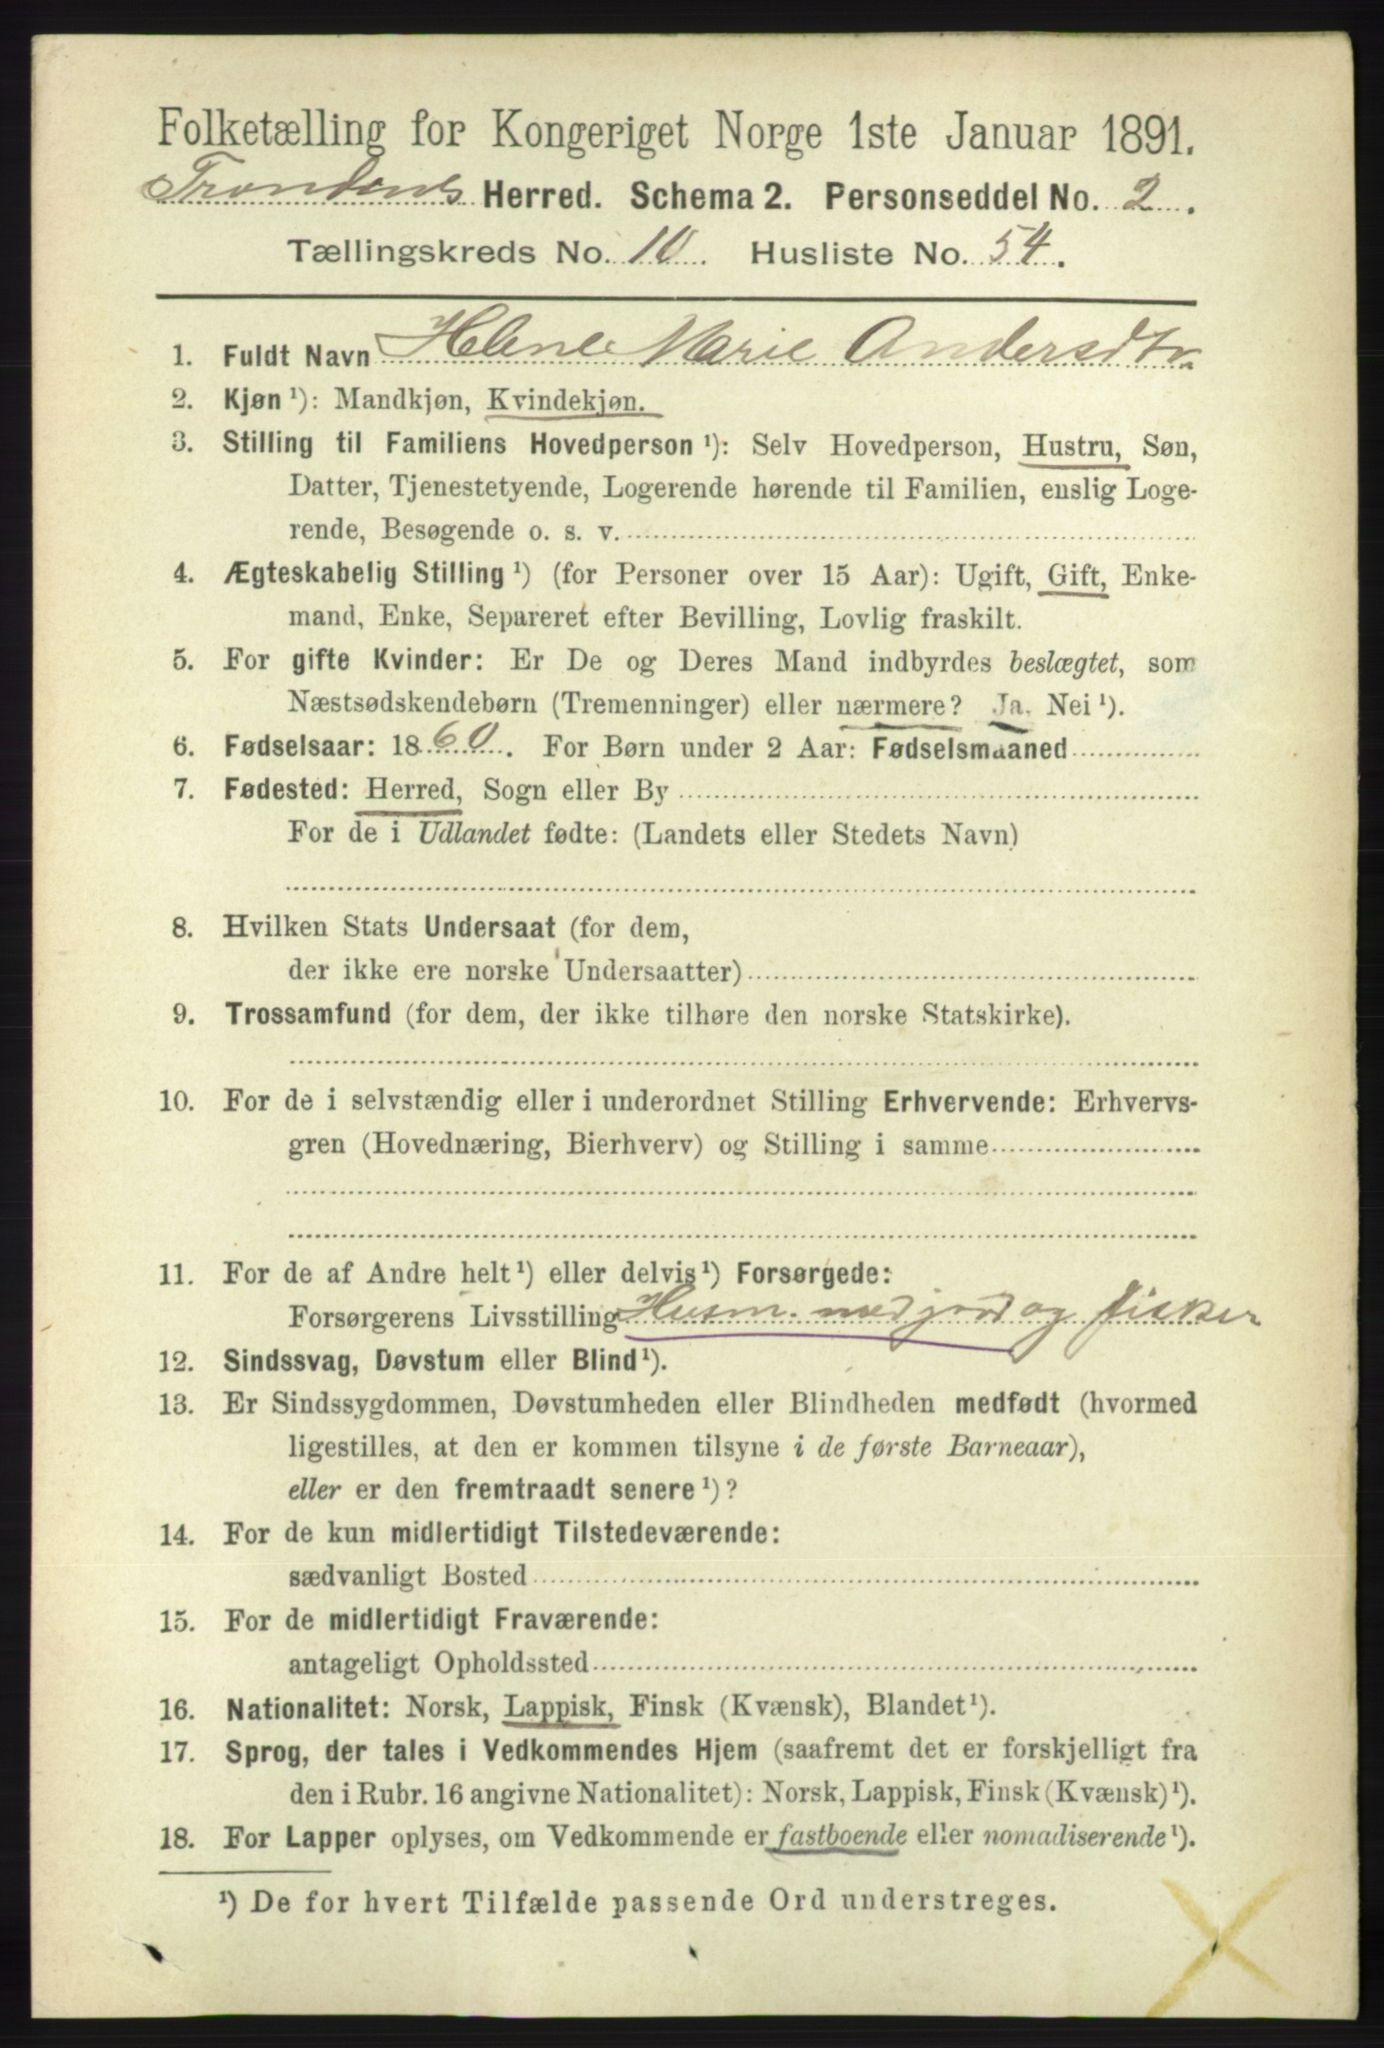 Folketælling for Kongeriget Norge 1ste Januar 1891.
Trondenes Herred. Schema 2. Personseddel No. 2.
Tællingskreds No. 10. Husliste No. 54.
1. Fuldt Navn Helene Marie Andersdtr
2. Kjøn ¹): Mandkjøn, Kvindekjøn.
3. Stilling til Familiens Hovedperson ¹): Selv Hovedperson, Hustru, Søn,
Datter, Tjenestetyende, Logerende hørende til Familien, enslig Loge-
rende, Besøgende o. s. v.
4. Ægteskabelig Stilling ¹) (for Personer over 15 Aar): Ugift, Gift, Enke-
mand, Enke, Separeret efter Bevilling, Lovlig fraskilt.
5. For gifte Kvinder: Er De og Deres Mand indbyrdes beslægtet, som
Næstsødskendebørn (Tremenninger) eller nærmere? Ja, Nei ¹).
6. Fødselsaar: 1860. For Børn under 2 Aar: Fødselsmaaned
7. Fødested: Herred, Sogn eller By
For de i Udlandet fødte: (Landets eller Stedets Navn)
8. Hvilken Stats Undersaat (for dem,
der ikke ere norske Undersaatter)
9. Trossamfund (for dem, der ikke tilhøre den norske Statskirke).
10. For de i selvstændig eller i underordnet Stilling Erhvervende: Erhvervs-
gren (Hovednæring, Bierhverv) og Stilling i samme
11. For de af Andre helt ¹) eller delvis ¹) Forsørgede:
Forsørgerens Livsstilling Husm. med jord og fisker
12. Sindssvag, Døvstum eller Blind ¹).
13. Er Sindssygdommen, Døvstumheden eller Blindheden medfødt (hvormed
ligestilles, at den er kommen tilsyne i de første Barneaar),
eller er den fremtraadt senere ¹)?
14. For de kun midlertidigt Tilstedeværende:
sædvanligt Bosted
15. For de midlertidigt Fraværende:
antageligt Opholdssted
16. Nationalitet: Norsk, Lappisk, Finsk (Kvænsk), Blandet ¹).
17. Sprog, der tales i Vedkommendes Hjem (saafremt det er forskjelligt fra
den i Rubr. 16 angivne Nationalitet): Norsk, Lappisk, Finsk (Kvænsk) ¹).
18. For Lapper oplyses, om Vedkommende er fastboende eller nomadiserende ¹).
¹) De for hvert Tilfælde passende Ord understreges.